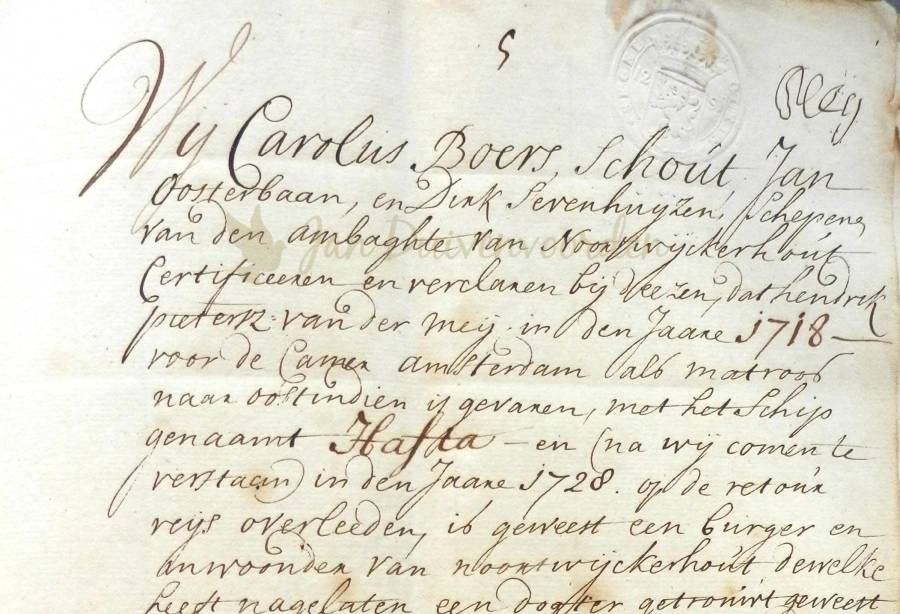 5
Wij Carolus Boers, Schout, Jan
Oosterbaan, en Dirk Sevenhuijzen, Schepens
van den ambaghte van Noortwijckerhout
Certificeeren en verclaren bij deezen, dat hendrik
pietersz van der meij in den Jaare 1718 —
voor de Camer amsterdam als matroos
naar oostindien is gevaren, met het Schip
genaamt Hasta — en (na wij comen te
verstaan) in den Jaare 1728. op de retour
reijs overleeden, is geweest een burger en
inwoonder van noortwijckerhout dewelke
heeft nagelaten een dogter getrouwt geweest